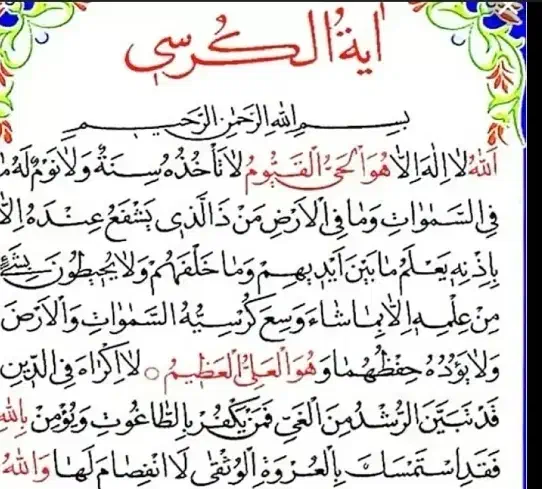 اٰية الكرسي
بسم الله الرحمٰن الرحيم
اَللهُ لَا اِلٰهَ اِلَّا هُوَ الْحَيُّ الْقَيُّومُ لَا تَأْخُذُهُ سِنَةٌ وَلَا نَوْمٌ لَهُ مَا
فِى السَّمٰوَاتِ وَمَا فِى الْاَرْضِ مَنْ ذَا الَّذٖى يَشْفَعُ عِنْدَهُ اِلَّا
بِاِذْنِهٖ يَعْلَمُ مَا بَيْنَ اَيْدٖيهِمْ وَمَا خَلْفَهُمْ وَلَا يُحٖيطُونَ بِشَیْءٍ
مِنْ عِلْمِهٖ اِلَّا بِمَا شَاءَ وَسِعَ كُرْسِيُّهُ السَّمٰوَاتِ وَالْاَرْضَ
وَلَا يَؤُدُهُ حِفْظُهُمَا وَهُوَ الْعَلِىُّ الْعَظٖيمُ ○ لَا اِكْرَاهَ فِى الدّٖينِ
قَدْ تَبَيَّنَ الرُّشْدُ مِنَ الْغَىِّ فَمَنْ يَكْفُرْ بِالطَّاغُوتِ وَيُؤْمِنْ بِاللهِ
فَقَدِ اسْتَمْسَكَ بِالْعُرْوَةِ الْوُثْقٰى لَا انْفِصَامَ لَهَا وَاللهُ